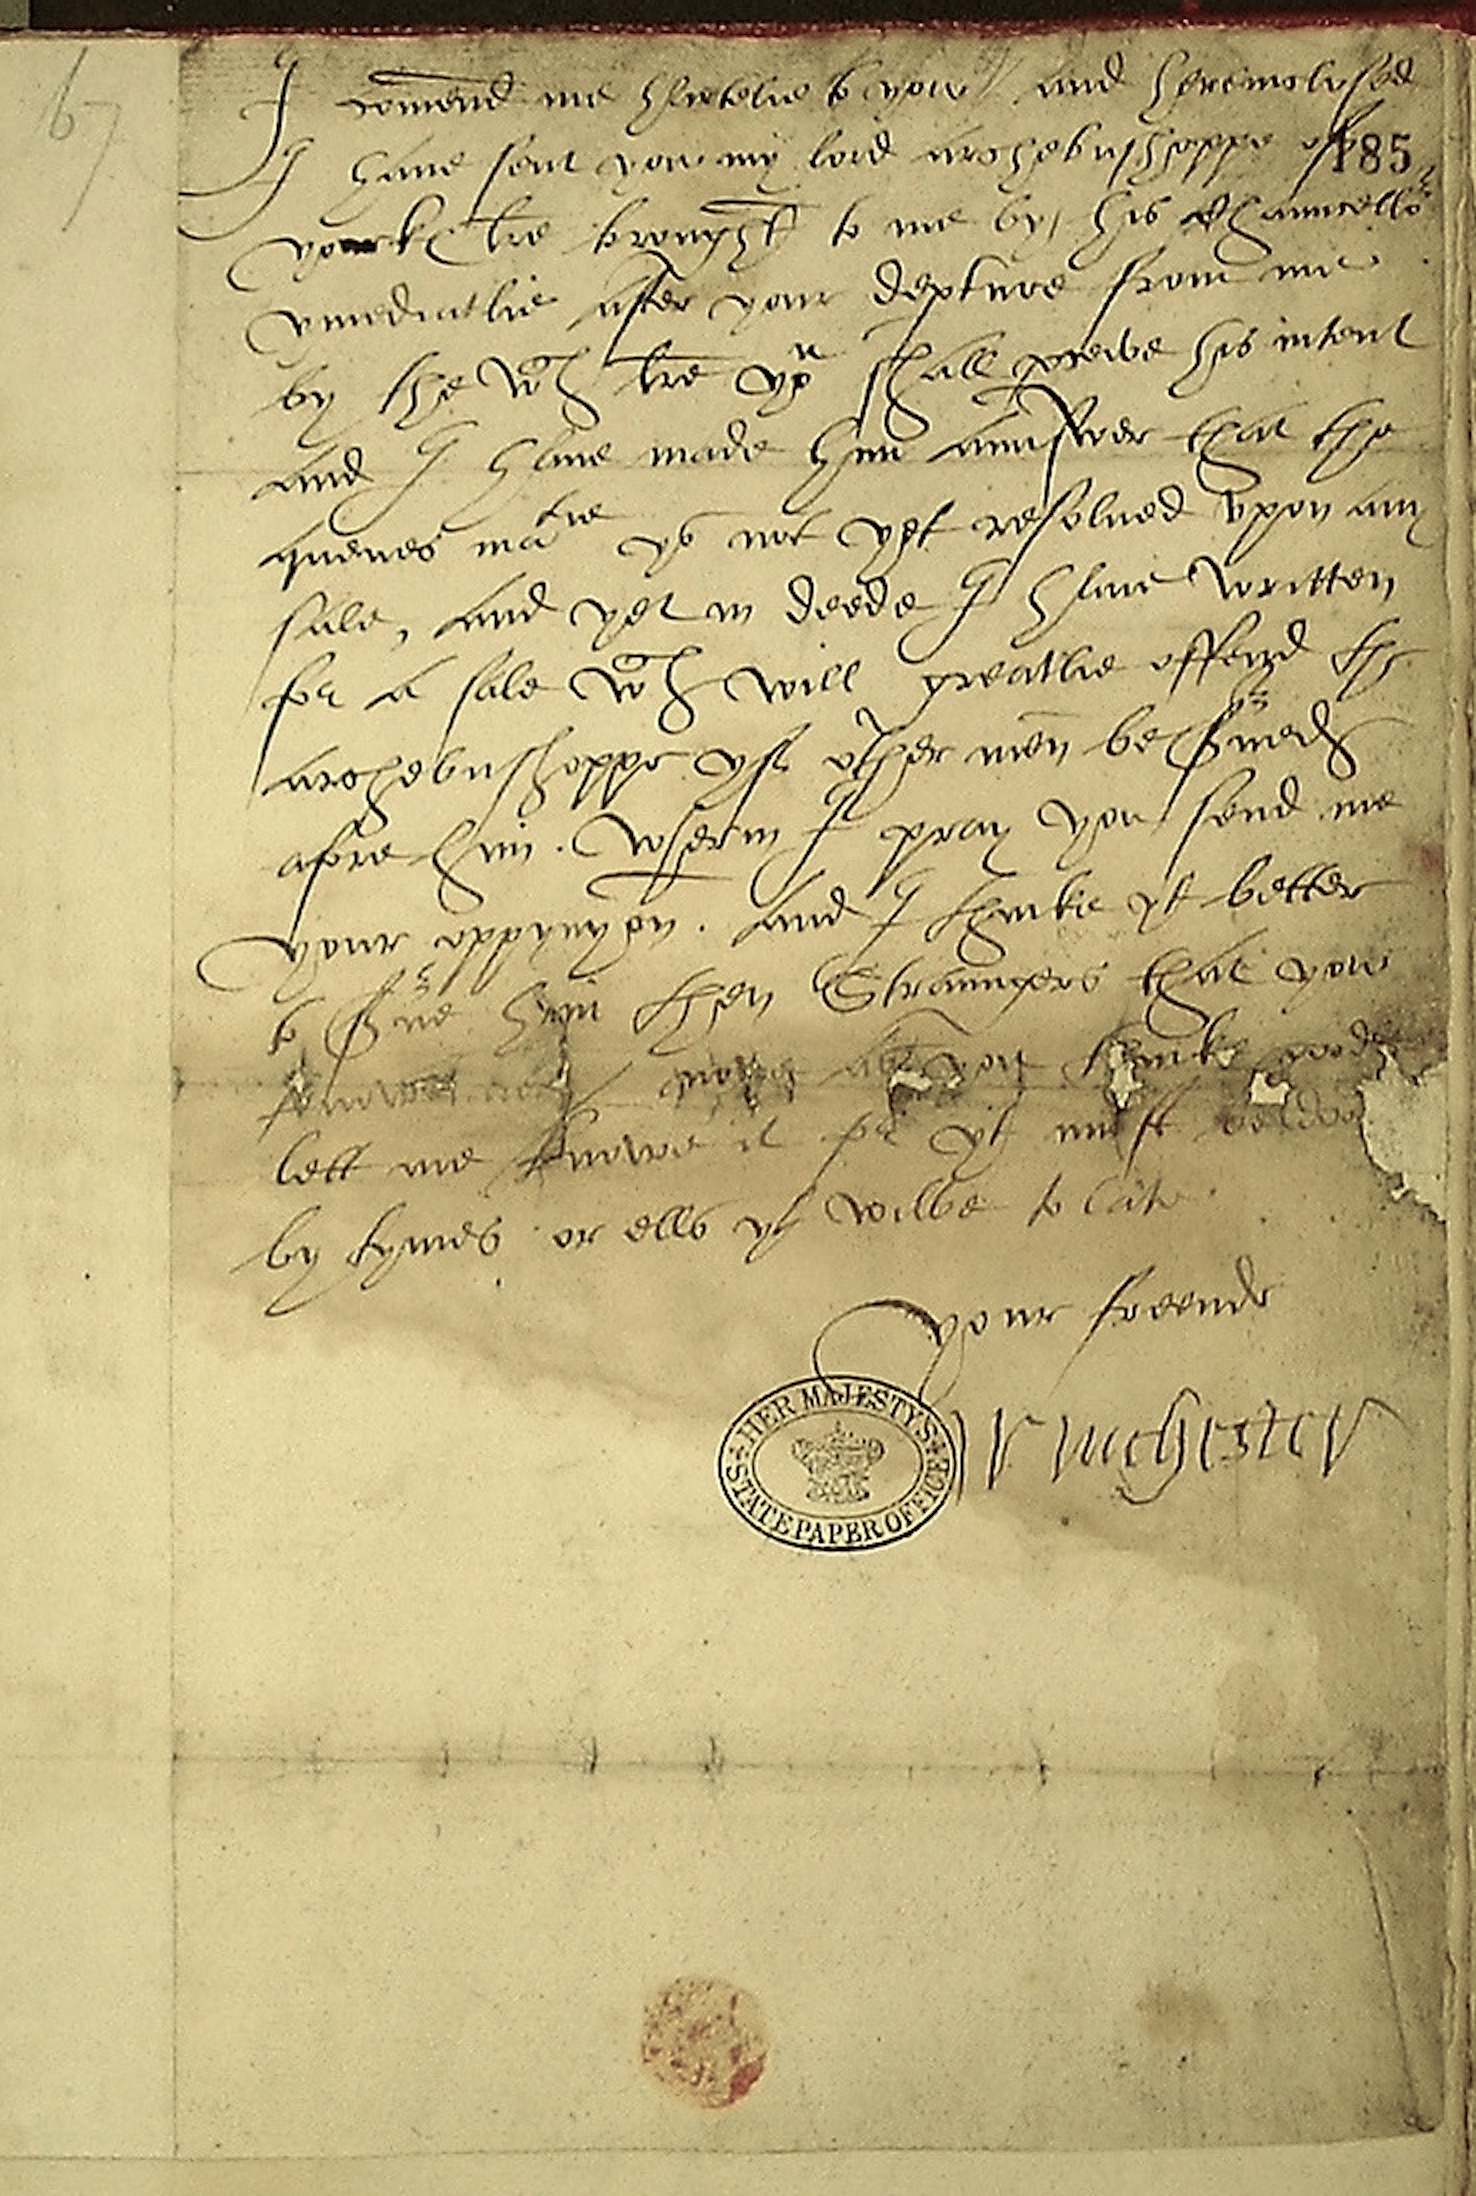 67
I com̄end me hartelie to you / and herinclosed
I haue sent you my lord archebusshoppe of
185
yorke lr̄e brought to me by his Chauncello^r
ymediatlie after your depture from me
by the w^ch lr̄e yo^u shall pceive his intent
and I haue made him aunswer that the
quenes ma^tie ys not yet resolued vpon any
sale, and yet in deede I haue written
for a sale w^ch will greatlie offend the
archebusshoppe yf other men be s^rued
afore him. Wherin I pray you send me
your oppynyon. And I thinke yt better
to s^rue hym then Straungers that you
you thinke good
lett me knowe it for yt must be
by tymes or ells yt wilbe to late.
your freende
Winchester
HER MAJESTY'S STATE PAPER OFFICE